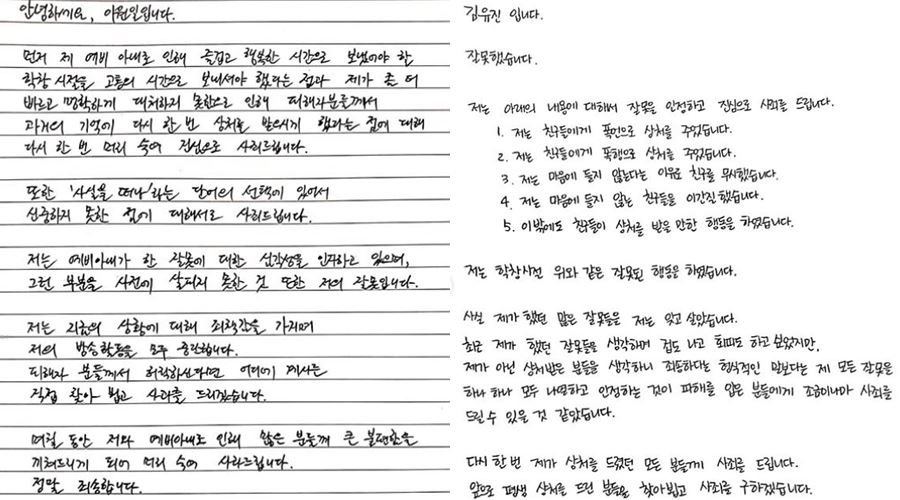 안녕하세요, 이원일입니다.
먼저 제 예비 아내로 인해 즐겁고 행복한 시간으로 보냈어야 한
학창 시절을 고통의 시간으로 보내셔야 했다는 점과 제가 좀 더
바르고 명확하게 대처하지 못함으로 인해 피해자분들께서
과거의 기억에 다시 한 번 상처를 받으시게 했다는 점에 대해
다시 한 번 머리 숙여 진심으로 사죄드립니다.
또한 '사실을 떠나'라는 단어의 선택에 있어서
신중하지 못한 점에 대해서도 사죄드립니다.
저는 예비아내가 한 잘못에 대한 심각성을 인지하고 있으며,
그런 부분을 사전에 살피지 못한 것 또한 저의 잘못입니다.
저는 지금의 상황에 대해 죄책감을 가지며
저의 방송활동을 모두 중단합니다.
피해자 분들께서 허락하신다면 어디에 계시든
직접 찾아 뵙고 사과를 드리겠습니다.
며칠 동안 저와 예비아내로 인해 많은 분들께 큰 불편함을
끼쳐드리게 되어 머리 숙여 사과드립니다.
정말 죄송합니다.
김유진 입니다.
잘못했습니다.
저는 아래의 내용에 대해서 잘못을 인정하고 진심으로 사죄를 드립니다.
1. 저는 친구들에게 폭언으로 상처를 주었습니다.
2. 저는 친구들에게 폭행으로 상처를 주었습니다.
3. 저는 마음에 들지 않는다는 이유로 친구를 무시했습니다.
4. 저는 마음에 들지 않는 친구들을 이간질 했습니다.
5. 이 밖에도 친구들이 상처를 받을 만한 행동을 하였습니다.
저는 학창시절 위와 같은 잘못된 행동을 하였습니다.
사실 제가 했던 많은 잘못들을 저는 잊고 살았습니다.
최근 제가 했던 잘못들을 생각하며 겁도 나고 회피도 하고 싶었지만,
제가 아닌 상처받은 분들을 생각하니 죄송하다는 형식적인 말보다는 제 모든 잘못을
하나 하나 모두 나열하고 인정하는 것이 피해를 입은 분들에게 조금이나마 사죄를
드릴 수 있을 것 같았습니다.
다시 한 번 제가 상처를 드렸던 모든 분들께 사죄를 드립니다.
앞으로 평생 상처를 드린 분들을 찾아뵙고 사죄를 구하겠습니다.